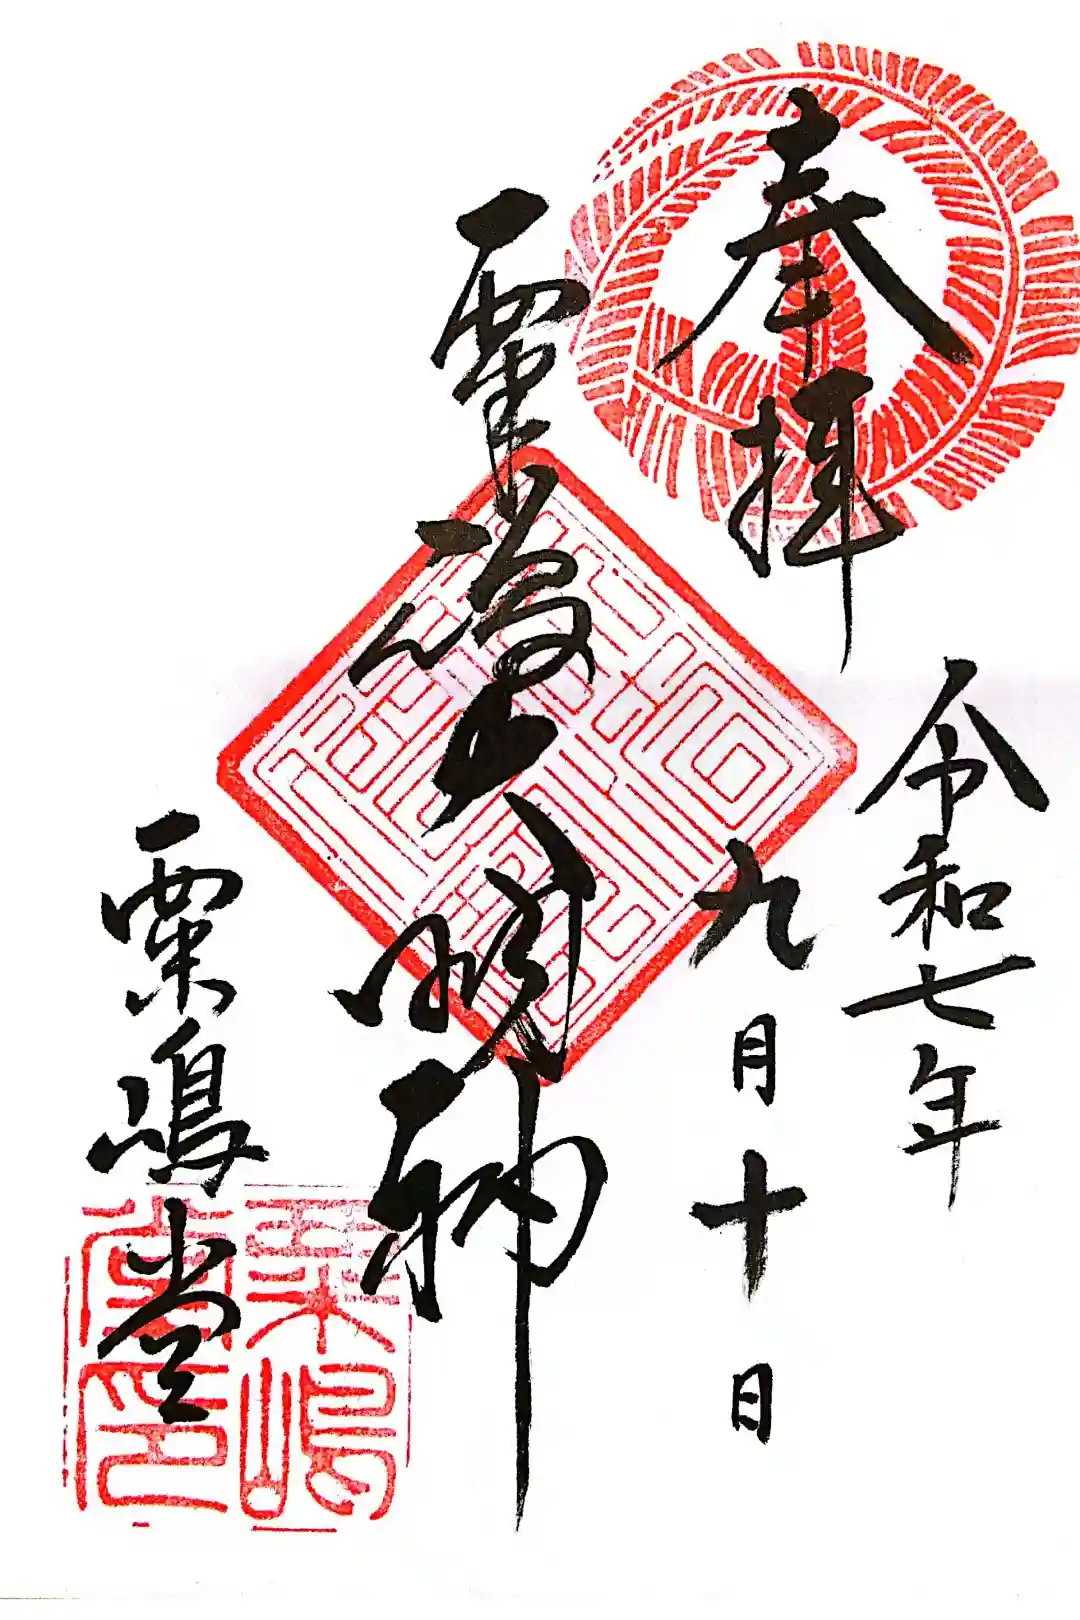 奉拝
令和七年
九月十日
粟嶋大明神
粟嶋堂
粟嶋堂印